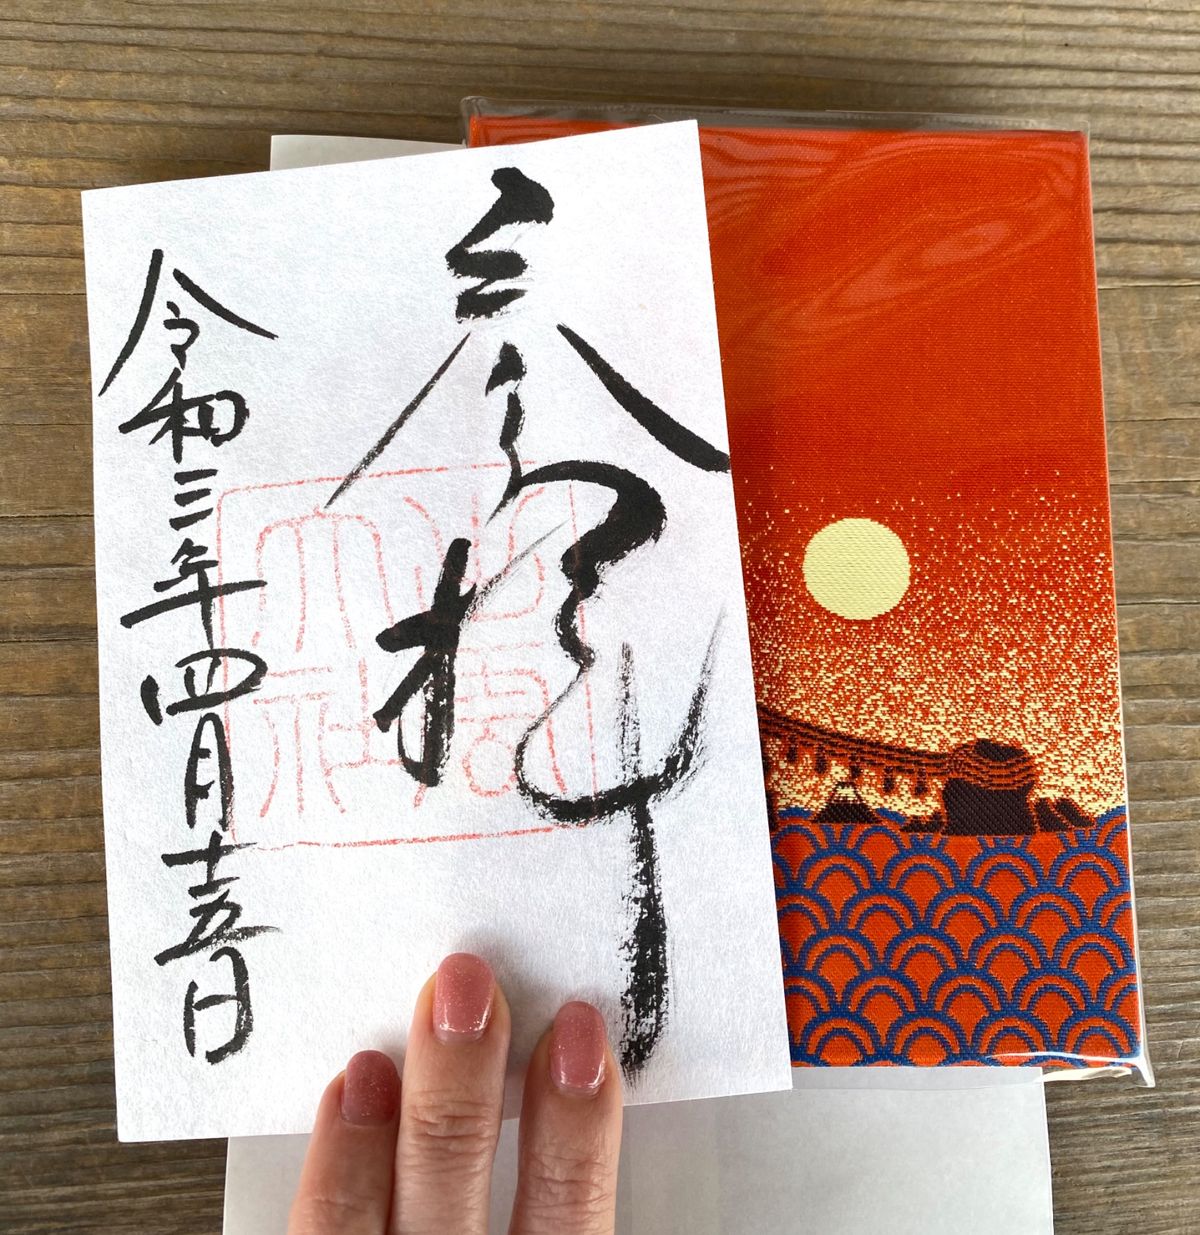 参拝
出雲
大社
令和三年四月十五日